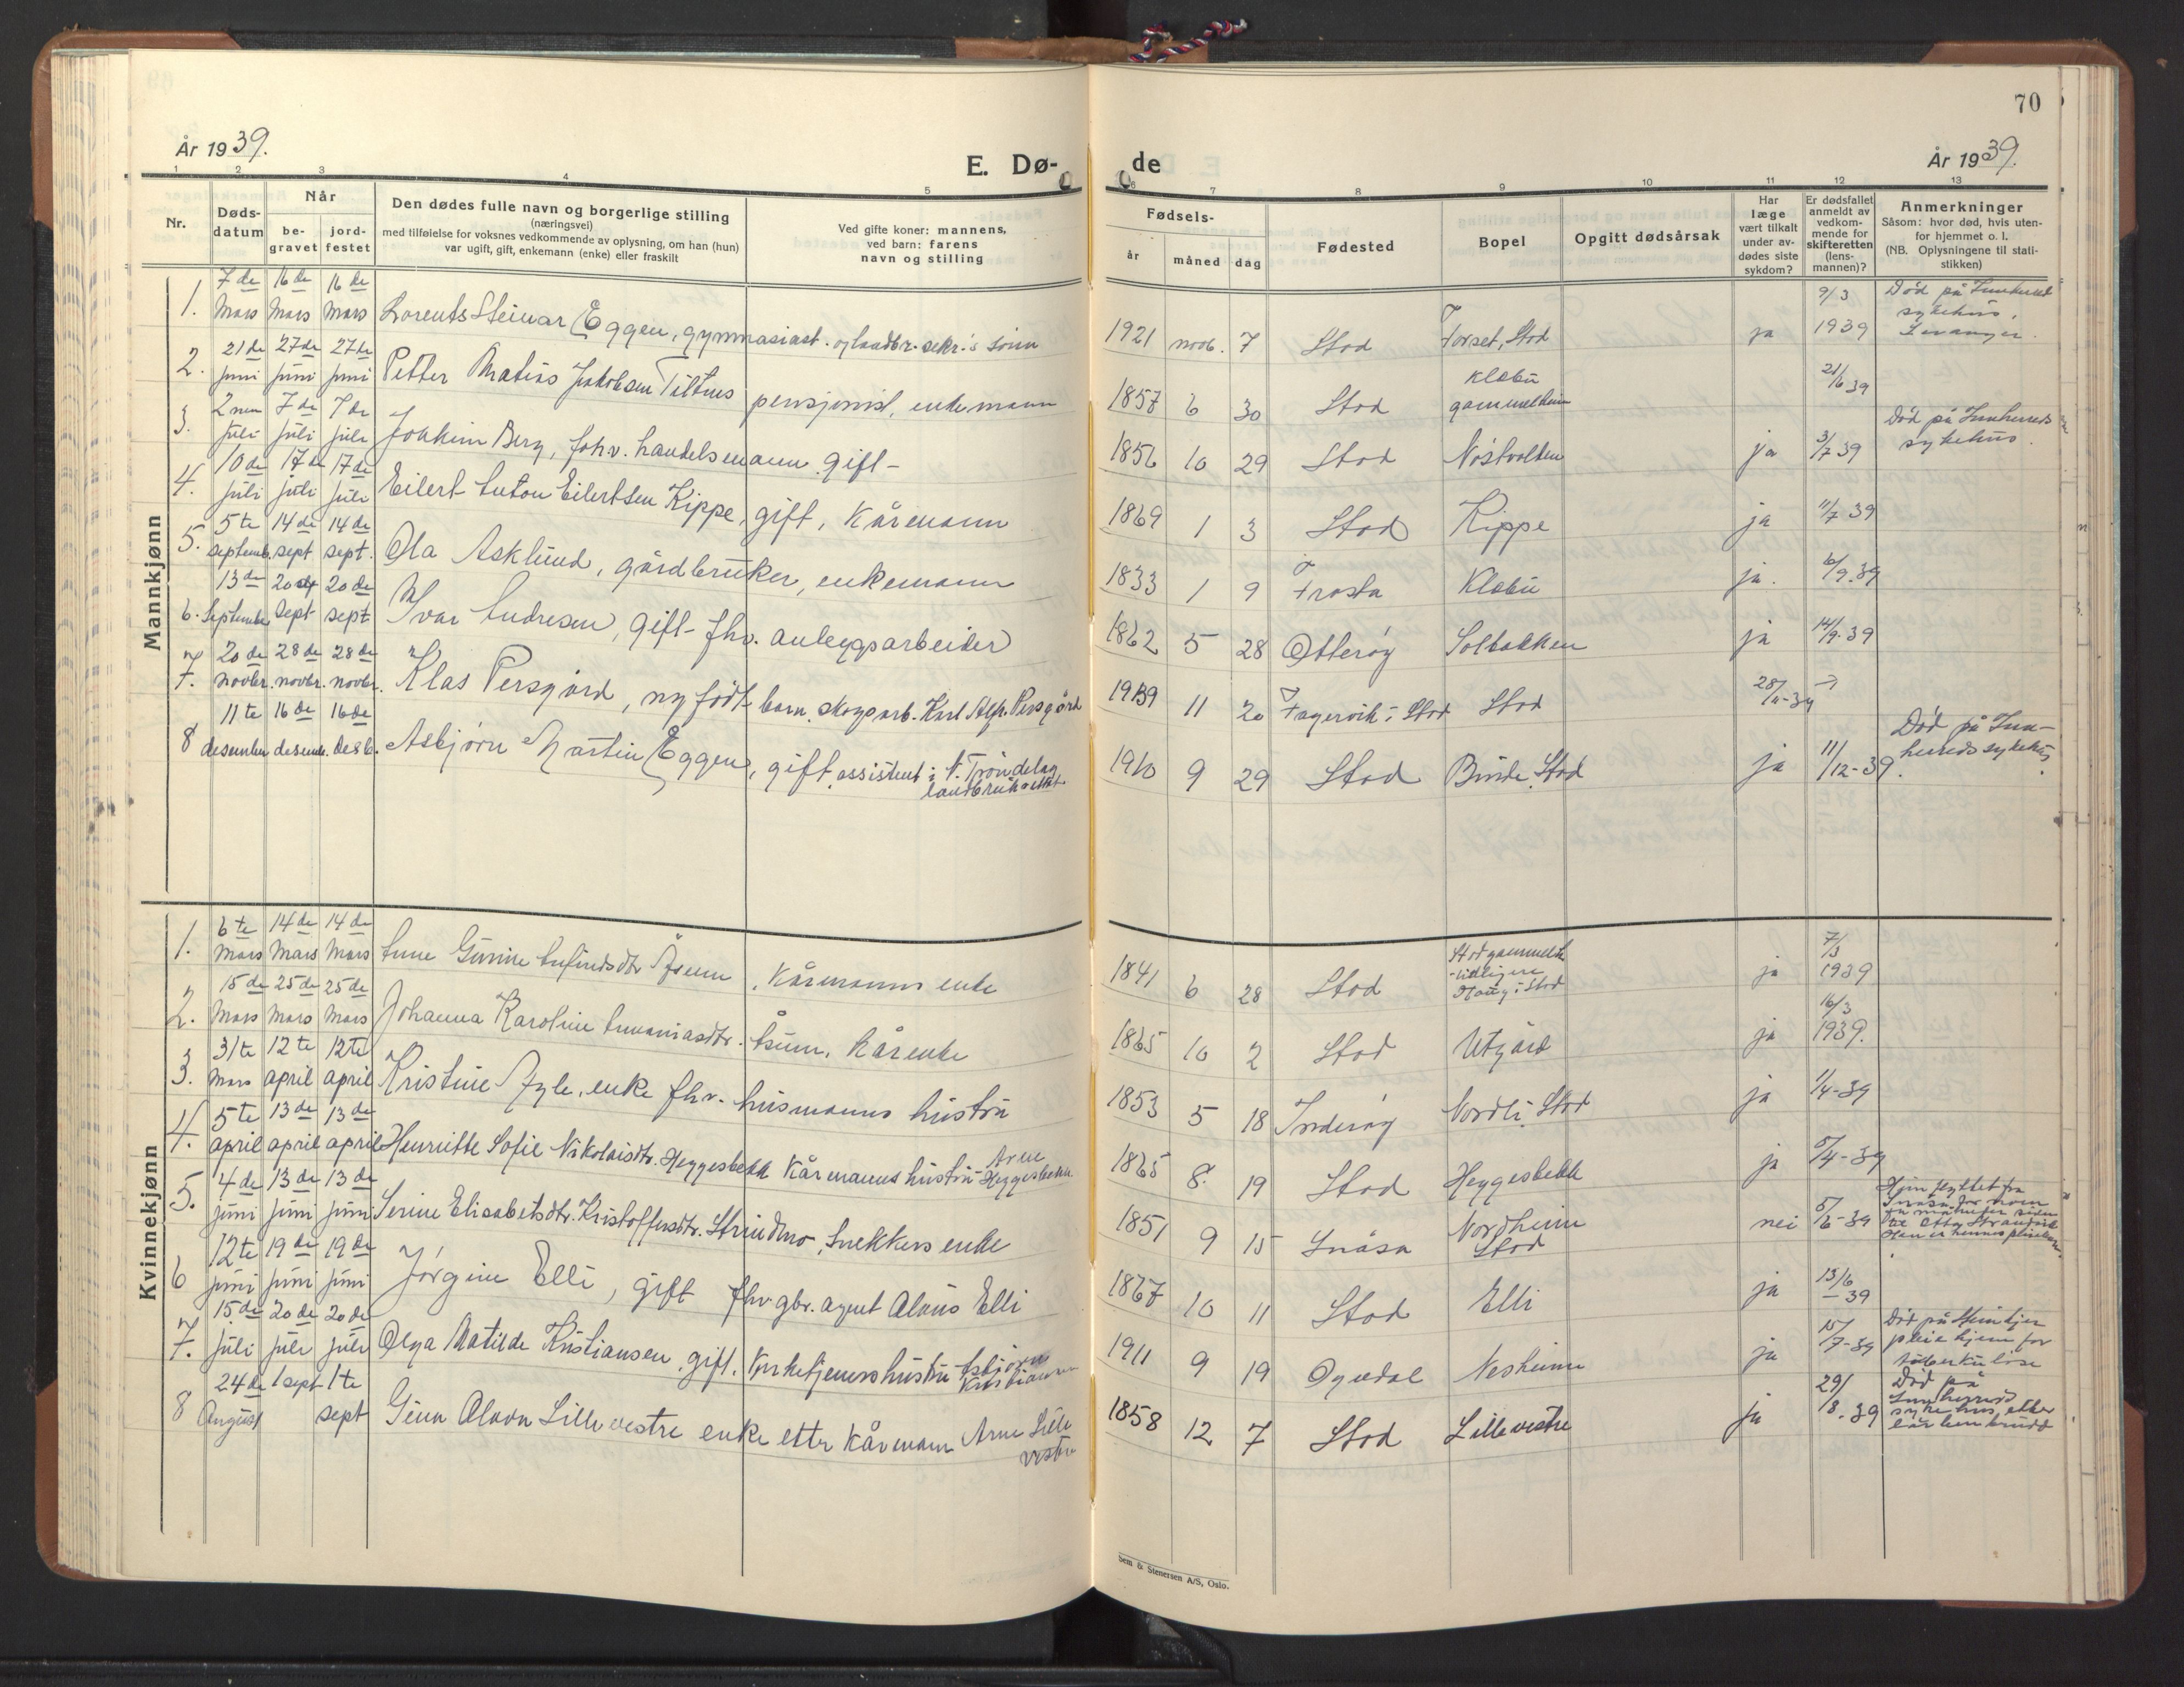 År 1939.
E. Dø-
1 2 3 4 5
Nr. Døds-datum Når be-gravet jord-festet
Den dødes fulle navn og borgerlige stilling
(næringsvei)
med tilføielse for voksnes vedkommende av oplysning, om han (hun)
var ugift, gift, enkemann (enke) eller fraskilt
Ved gifte koner: mannens,
ved barn: farens
navn og stilling
Mannkjønn
1. 7de Mars 16de Mars 16de Mars Lorents Steinar Eggen, gymnasiast. og landbr. sekr.'s sønn
2. 21de juni 27de juni 27de juni Petter Matius Jakobsen Tiltnes pensjonist, enkemann
3. 2nen juli 7de juli 7de juli Joakim Berg, forhv. handelsmann gift-
4. 10de juli 17de juli 17de juli Eilert Anton Eilertsen Kippe, gift, Kårmann
5. 5te septemb. 14de sept 14de sept. Ola Asklund, gårdbruker, enkemann
6. 13de September 20de sept 20de sept Ivar Andresen, gift- fhv. anleggsarbeider
7. 20de novbr. 28de novbr. 28de novbr. Klas Persgård, nyfødt barn. skogsarb. Karl Alfr. Persgård
8 11te desember 16de desemb. 16de desb. Asbjørn Martin Eggen, gift assistent i N. Trøndelag
Kvinnekjønn
1. 6te Mars 14de Mars 14de Mars Anne Gurine Anfindsdtr , Kårmanns enke
2. 15de Mars 25de Mars 25de Mars Johanna Karoline Ananiasdtr. Åsum, Kårenke
3. 31te Mars 12te april 12te april Kristine , enke fhv. husmanns hustru
4. 5te april 13de april 13de april Henriette Sofie Nikolaisdtr. Heggesbekk Kårmanns hustru Arne Heggesbekk
5. 4de juni 13de juni 13de juni Serine Elisabetsdtr. Kristoffersdtr. Strindmo, Snekkers enke
6 12te juni 19de juni 19de juni Jørgine Elli, gift fhv gbr. agent Alanus Elli
7. 15de juli 20de juli 20de juli Olga Matilde Kristiansen, gift. Kirketjeners hustru Asbjørn Kristiansen
8 24de August 1 sept 1te sept Alvora Lillevestre enke etter Kårmann Arne Lille vestre
70
de
År 1939.
6 7 8 9 10 11 12 13
Fødsels- år måned dag
Fødested
Bopel
Opgitt dødsårsak
Har læge vært tilkalt under av-dødes siste sykdom?
Er dødsfallet anmeldt av vedkom-mende for skifteretten (lens-mannen)?
Anmerkninger
Såsom: hvor død, hvis uten-
for hjemmet o. l.
(NB. Oplysningene til stati-
stikken)
1921 novb. 7 Stod Forset, Stod ja 9/3 1939 Død på Innherred sykehus, Levanger.
1857 6 30 Stod Klæbu gammelheim 21/6 39
1856 10 29 Stod Nøstvolden ja 3/7 39 Død på Innherreds sykehus.
1869 1 3 Stod Kippe ja 11/7 39
1833 1 9 Frosta Klæbu ja. 6/9.39
1862 5 28 Otterøy Solbakken ja 14/9.39
1939 11 20 Fagervik i Stod Stod 28/11-39
1910 9 29 Stod Binde, Stod ja 11/12-39 Død på Inn-herreds sykehus.
1841 6 28 Stod Stod gammelh. tidligere Haug i Stod ja 7/3 1939
1865 10 2 Stod Utgård ja 16/3 1939.
1853 5 18 Inderøy Nordli, Stod ja 1/4-39
1865 8. 19 Stod Heggesbekk ja 5/4-39
1851 9 15 Snåsa Nordheim Stod nei 5/6-39 Hun flyttet fra Snåsa for noen få måneder siden
1867 10 11 Stod Elli ja 13/6 39
1911 9 19 Ogndal Nesheim ja 15/7-39 Død på Steinkjer pleiehjem for tuberkuløse
1858 12 7 Stod Lillevestre ja 29/8.39 Død på Innherred sykehus, etter lårhalsbrudd
Sem & Stenersen A/S, Oslo.